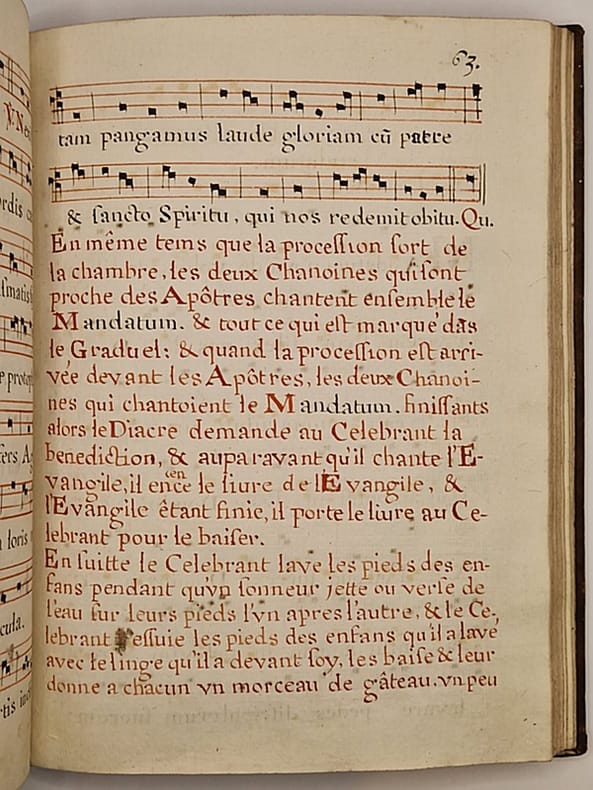 63.
tam pangamus laude gloriam cũ patre
& sancto Spiritu, qui nos redemit obitu. Qu.
En même tems que la procession sort de
la chambre, les deux Chanoines qui sont
proche des Apôtres chantent ensemble le
Mandatum. & tout ce qui est marqué dãs
le Graduel; & quand la procession est arri-
vée devant les Apôtres, les deux Chanoi-
nes qui chantoient le Mandatum. finissants
alors le Diacre demande au Celebrant la
benediction, & auparavant qu'il chante l'E-
vangile, il encẽce le livre de l'Evangile, &
l'Evangile êtant finie, il porte le livre au Ce-
lebrant pour le baiser.
En suitte le Celebrant lave les pieds des en-
fans pendant qu'vn sonneur jette ou verse de
l'eau sur leurs pieds l'vn apres l'autre, & le Ce-
lebrant essuie les pieds des enfans qu'il a lavé
avec le linge qu'il a devant soy, les baise & leur
donne a chacun vn morceau de gâteau, vn peu
℣. Ne
ordis
cula.